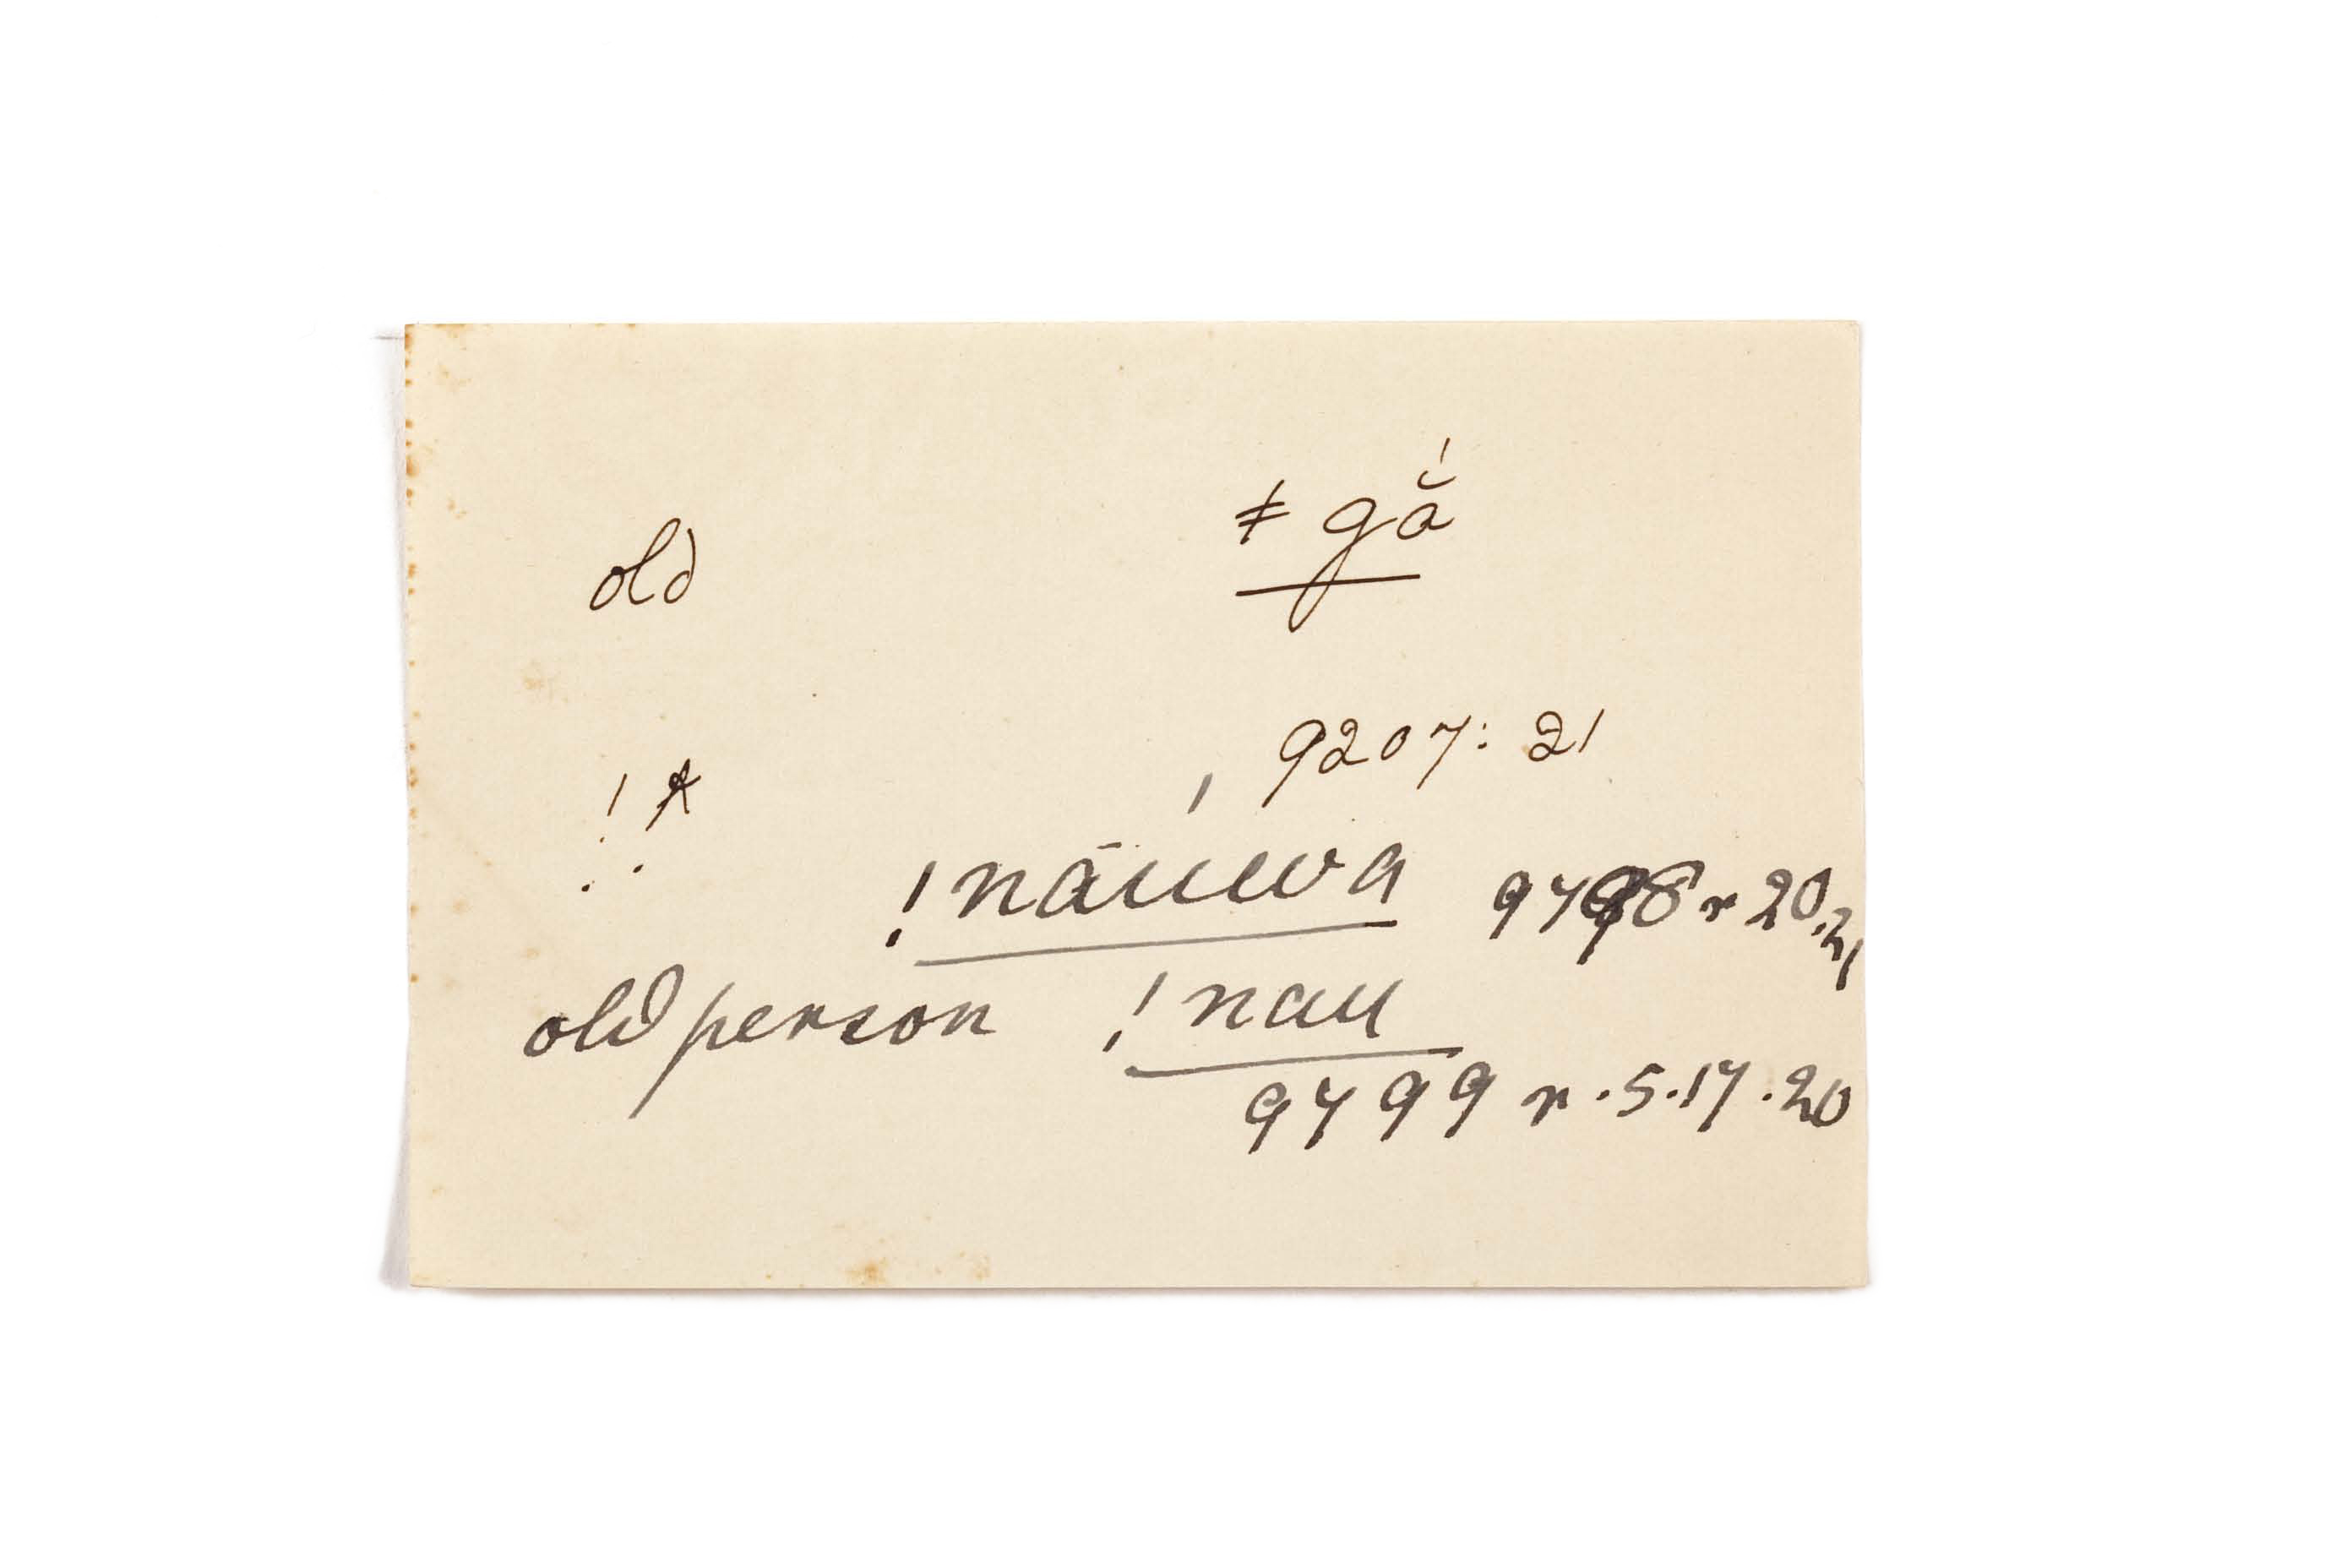 old ǂgắ
9207: 21
! ꓘ
!nāúwa 9798 r 20.21
old person !nau
9799 r. 5. 17. 20